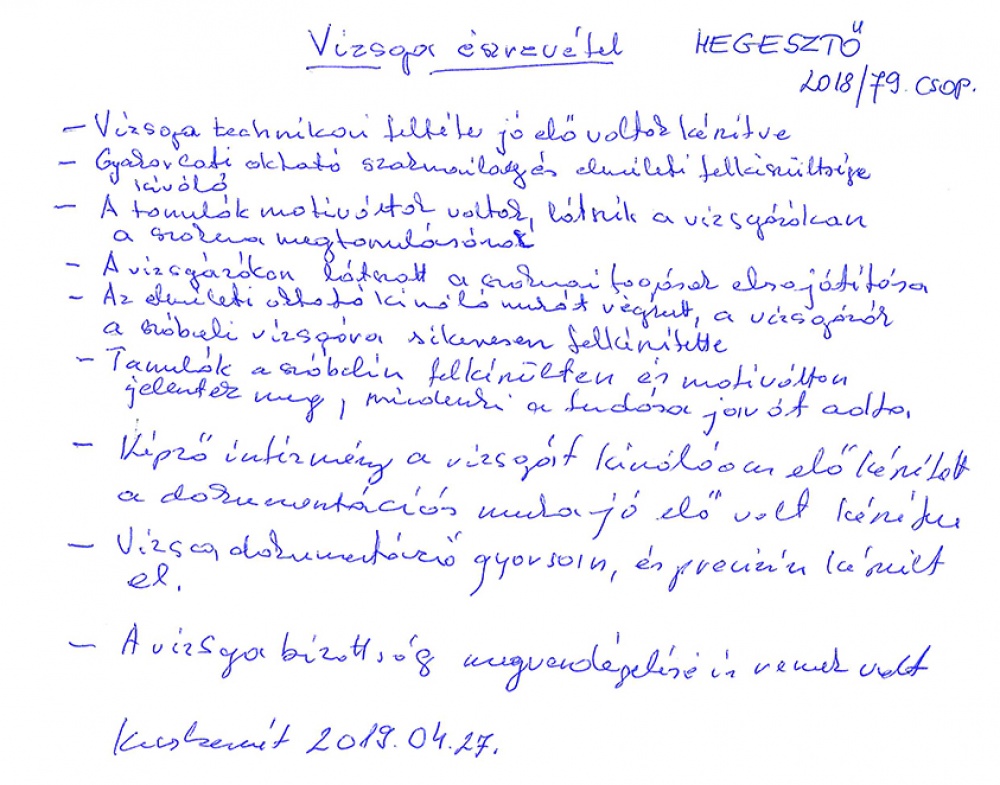 Vizsga észrevétel HEGESZTŐ
2018/79. CSOP.
- Vizsga technikai feltétele jó elő voltak készítve
- Gyakorlati oktató szakmailag és elméleti felkészültsége
kiváló
- A tanulók motiváltak voltak, látszik a vizsgázókon
a szakma megtanulásának
- A vizsgázókon látszott a szakmai fogások elsajátítása
- Az elméleti oktató kiváló munkát végzett, a vizsgázók
a szóbeli vizsgára sikeresen felkészítette
- Tanulók a szóbelin felkészülten és motiváltan
jelentek meg, mindenki a tudása javát adta.
- Képző intézmény a vizsgát kiválóan előkészített
a dokumentációs munka jó elő volt készítve
- Vizsga dokumentáció gyorsan, és precízen készült
el.
- A vizsga bizottság megvendégelése is remek volt
Kecskemét 2019.04.27.